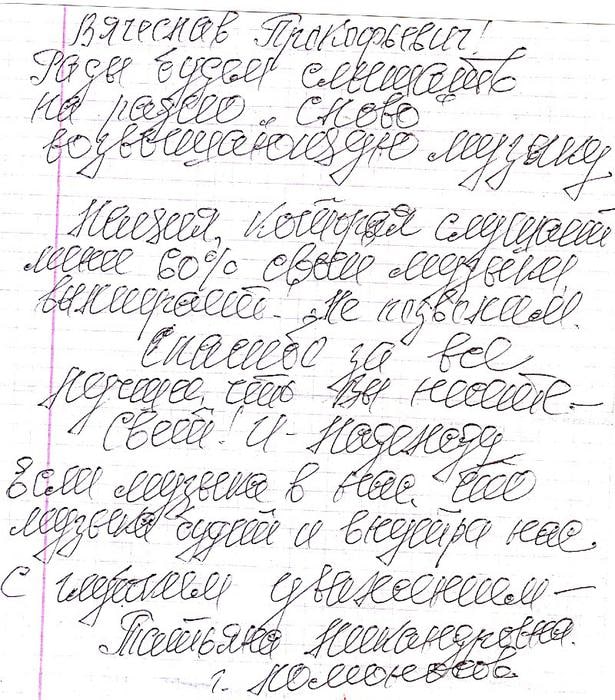 Вячеслав Прокофьевич!
Рады будем слышать
на радио "Слово"
возвышающую музыку
Нация, которая слушает
менее 60% своей музыки,
вымирает. Не позволим.
Спасибо за все
лучшее, что Вы несёте –
Свет! И – Надежду
Если музыка в нас, то
музыка будет и внутри нас.
С глубоким уважением –
Татьяна Никандровна.
г.